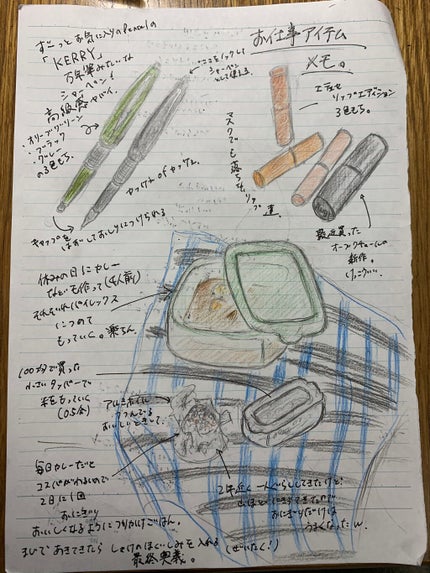 お仕事アイテム
メモ。
ずーっとお気に入りのPentelの
「KERRY」
万年筆みたいな
シャーペン!
高級感ヤバイ。
オリーブグリーン
ブラック
グレー
の3色もち。
ここをノックして
シャーペン
として使える。
キャップを
はずしておしりにつけられる
マスクでも落ちないリップ達。
エテュセ
リップエディション
3色もち。
最近買った
オープンの
新作。
けっこういい。
休みの日にカレー
などを作って(4人前)
それぞれパイレックス
につめて
もっていく。楽ちん。
100均で買った
小さいタッパーで
米をもっていく
(0.5合)
アルミホイル
でつつんでる
おいしいときて。
毎日カレーだと
コスパがわるいので
2日に1回
おにぎり
おいしくなるようにつけかけごはん。
2年近く一人ぐらししてきたけど
おにぎりだけは
うまくなったw
それであきてきたらしゃけのほぐしみを入れる(ぜいたく!)
最終奥義。